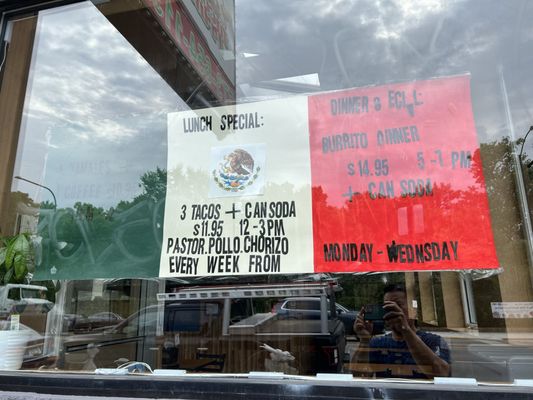 LUNCH SPECIAL:
3 TACOS + CAN SODA
$11.95 12-3PM
PASTOR.POLLO.CHORIZO
EVERY WEEK FROM
DINNER
BURRITO DINNER
$14.95 5-7 PM
+ CAN SODA
MONDAY - WEDNSDAY